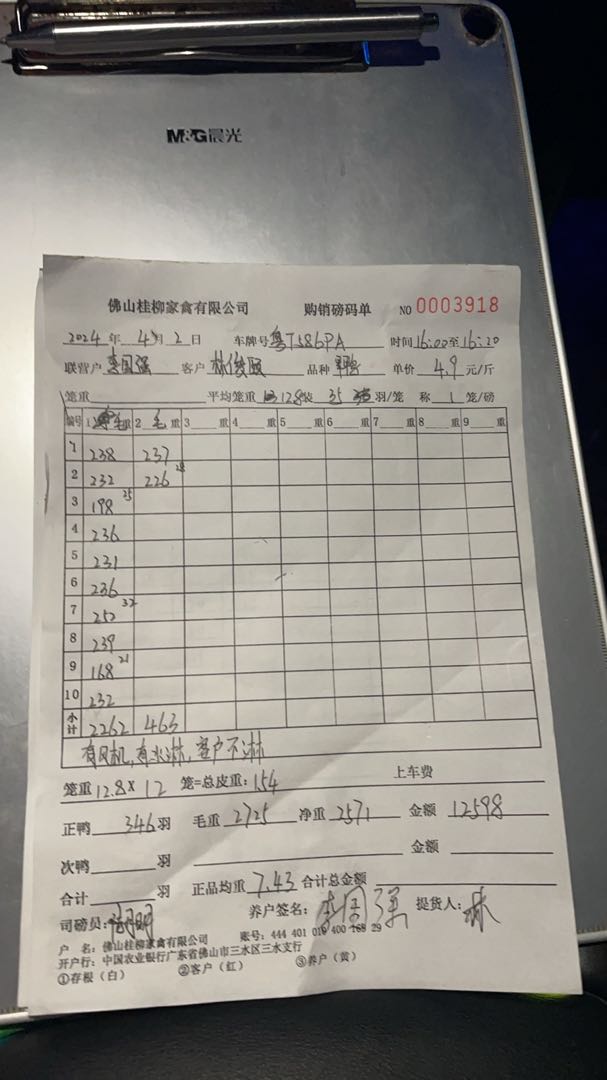 M&G晨光
佛山桂柳家禽有限公司 购销磅码单 NO 0003918
2024年 4月 2日 车牌号 粤T586PA 时间 16:00至16:20
联营户 李国强 客户 品种 单价 4.9 元/斤
笼重 平均笼重 12.8 装 35 羽/笼 称 1 笼/磅
编号 1 毛重 2 毛重 3 重 4 重 5 重 6 重 7 重 8 重 9 重
1 238 237
2 232 226 28
3 198 25
4 236
5 231
6 236
7 252 32
8 239
9 168 21
10 232
小计 2262 463
有风机,有水淋,客户不淋
笼重 12.8 × 12 笼=总皮重: 154 上车费
正鸭 346 羽 毛重 2725 净重 2571 金额 12598
次鸭 羽 金额
合计 羽 正品均重 7.43 合计总金额
司磅员: 养户签名: 李国强 提货人: 林
户 名: 佛山桂柳家禽有限公司 账号: 444 401 010 400 168 29
开户行: 中国农业银行广东省佛山市三水区三水支行
①存根(白) ②客户(红) ③养户(黄)